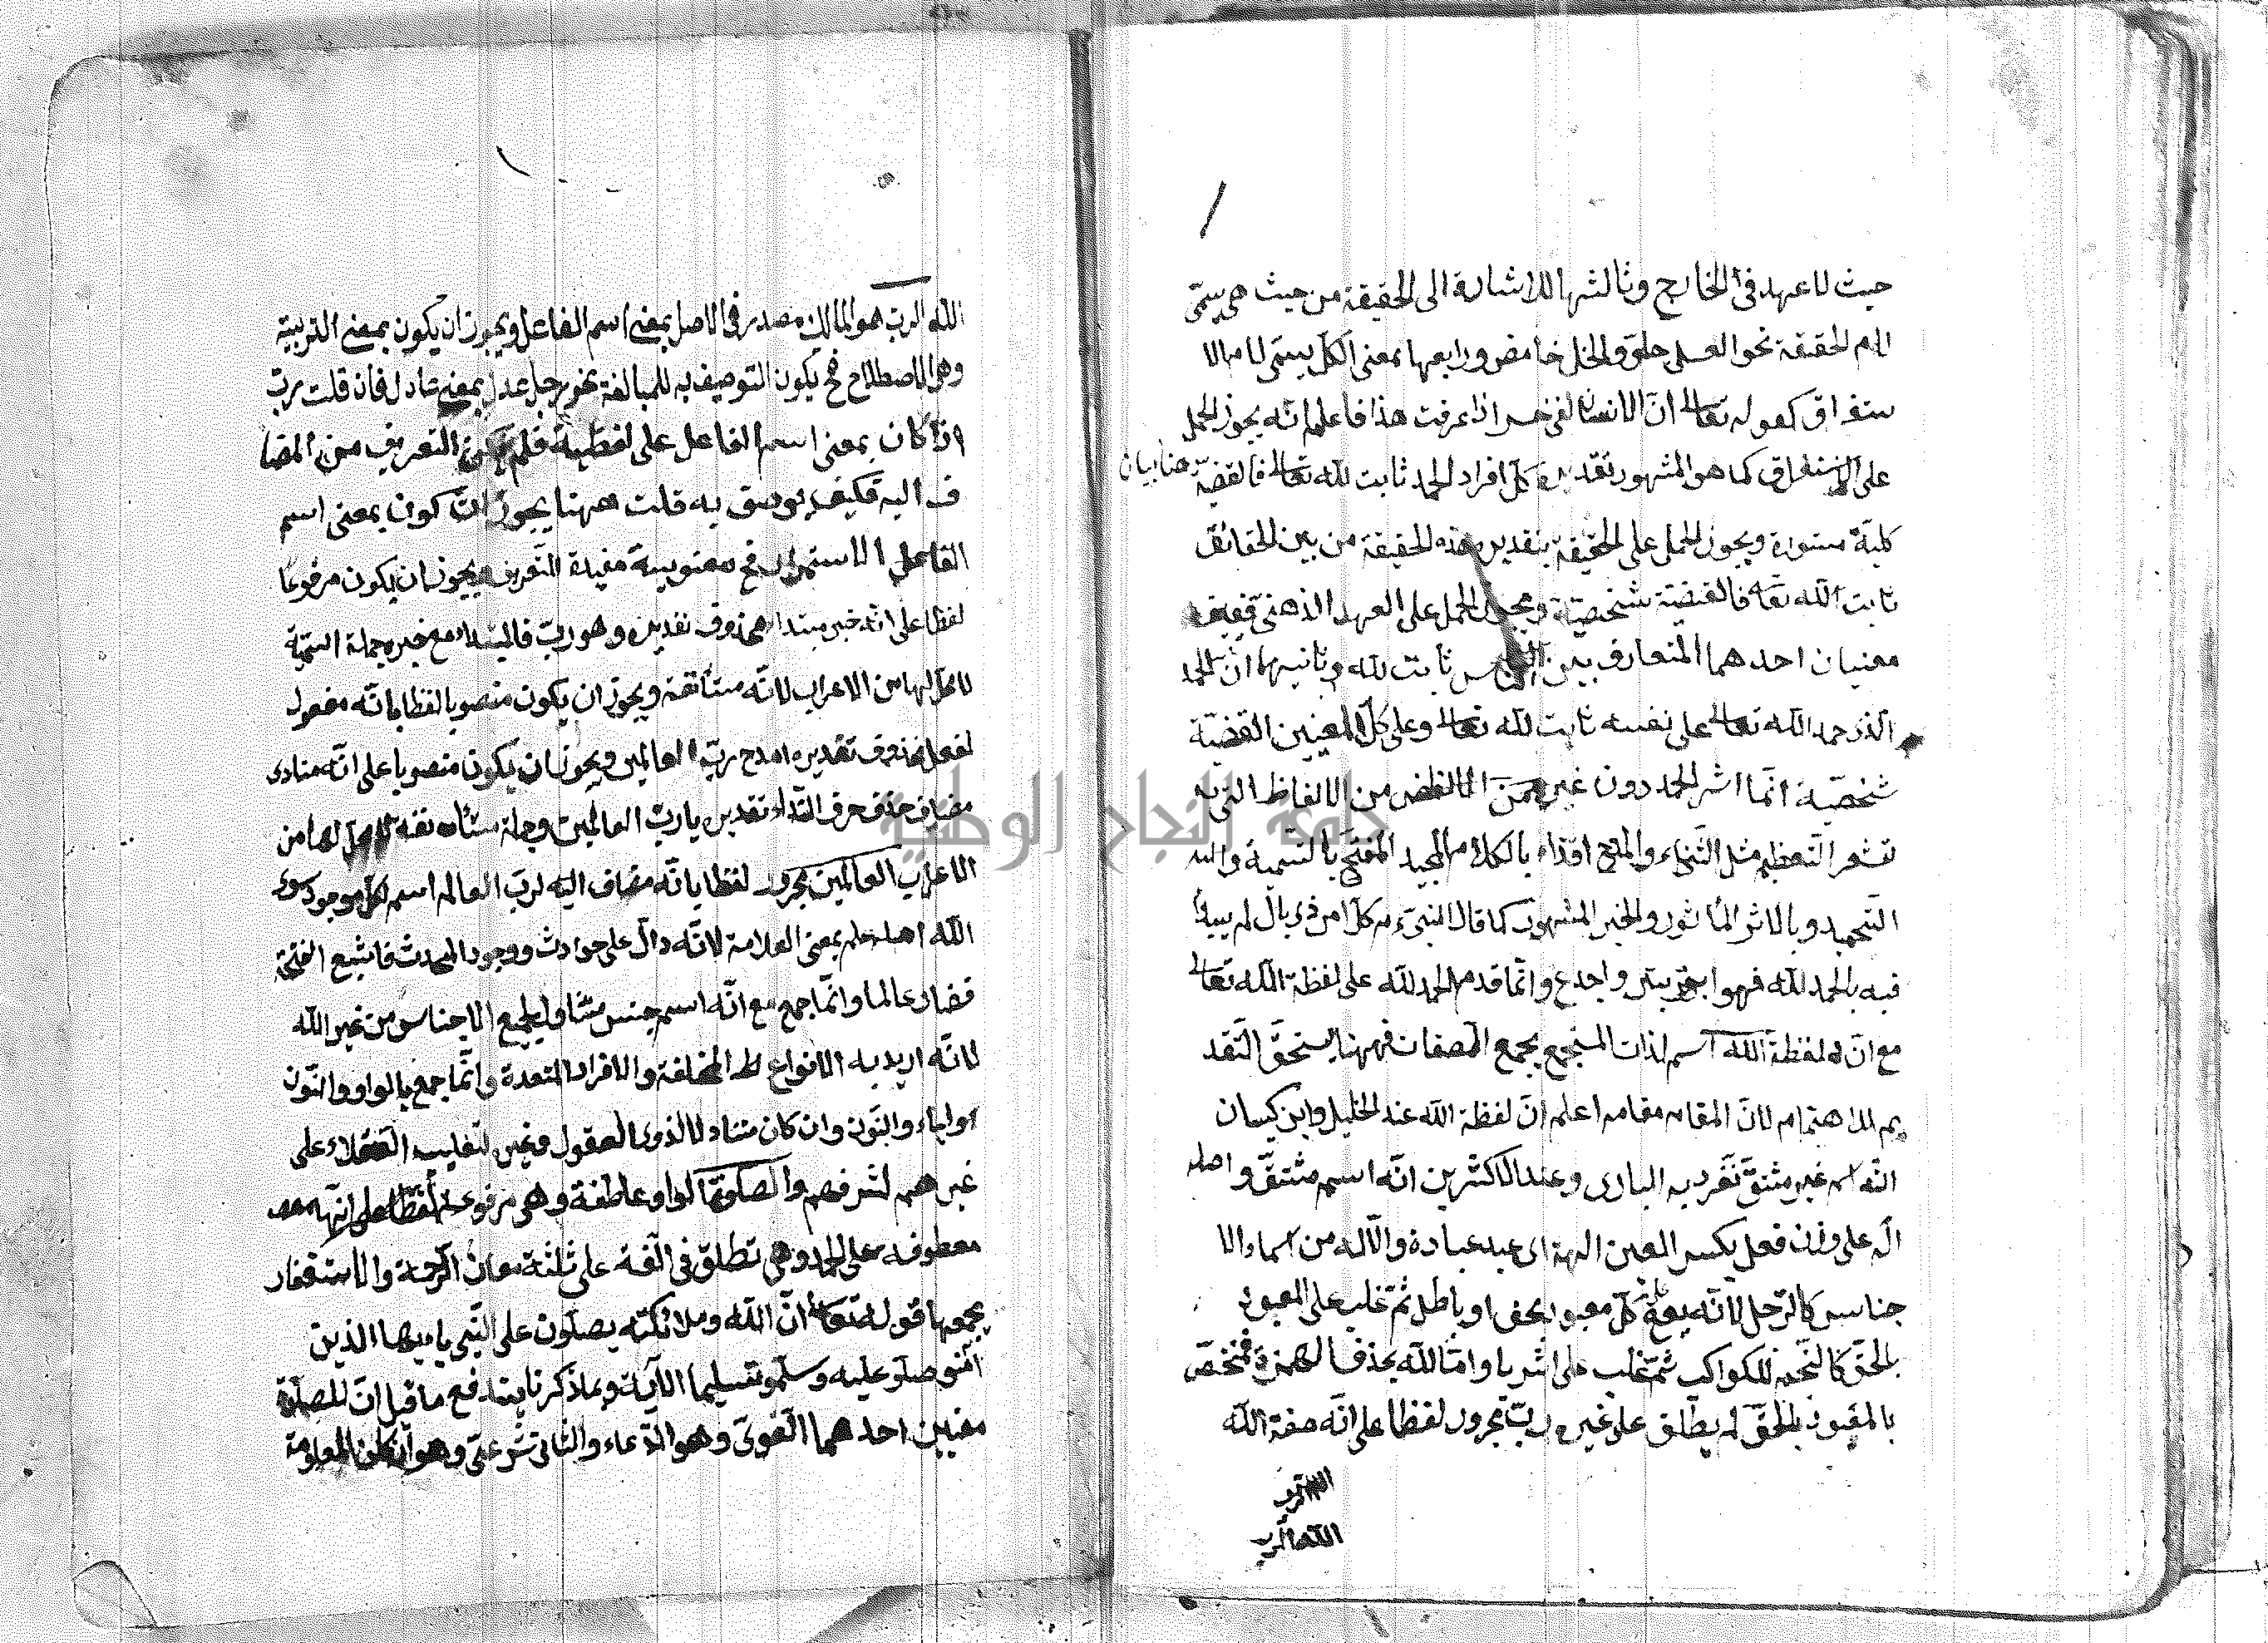 حيث لا عهد فى الخارج وثالثها للاشارة الى الحقيقة من حيث هى يسمّى
لام الحقيقة نحو العسل حلق والخل حامض ورابعها بمعنى الكل يسمّى لام الا
ستغراق كقوله تعالى انّ الانسان لفى خسر اذا عرفت هذا فاعلم انّه يجوز الحمل
على الاستغراق كما هو المشهور تقديره كلّ افراد الحمد ثابت للّه تعالى فالقضيّة هنا بيان
كليّة مسورة ويجوز الحمل على الحقيقة بتقدير هذه الحقيقة من بين الحقائق
ثابت اللّه تعا فالقضيّة شخصيّة ويجوز الحمل على العهد الذهنى ففيه
معنيان احدهما المتعارف بين الناس ثابت للّه وثانيهما انّ الحمد
الّذى حمد اللّه تعالى على نفسه ثابت للّه تعالى وعلى كلّ المعنيين القضيّة
شخصيّة انّما اثر الحمد دون غيره من الالفاظ التى
تشعر التعظيم مثل الثّناء والمدح اقتداء بالكلام المجيد المفتتح بالتسمية وال
التحميد وبالاثر المأثور والخبر المشهور كما قال النبىّ ء م كلّ امر ذى بال لم يبدأ
فيه بالحمد للّه فهو ابتر واجدع وانّما قدم الحمد للّه على لفظة اللّه تعالى
مع انّ لفظة اللّه اسم لذات المستجمع بجمع الصفات فههنا يستحقّ التّقد
يم للاهتمام لانّ المقام مقامه اعلم انّ لفظة اللّه عند الخليل وابن كيسان
انّه اسم غير مشتقّ تفرد به البارى وعند الاكثرين انّه اسم مشتقّ واصله
اله على وزن فعل بكسر العين الهة اى عبد عبادة والاله من اسماء الا
جناس كالرّجل لانّه يقع على كلّ معبود بحق او باطل ثمّ غلب على المعبود
بالحقّ كالنّجم للكواكب ثمّ غلب على الثريا وامّا اللّه بحذف الهمزة فمختصّ
بالمعبود بالحقّ لم يطلق على غيره ربّ مجرور لفظا على انّه صفة اللّه
اللّه الرب
اللّه الربّ هو المالك مصدر فى الاصل بمعنى اسم الفاعل ويجوز ان يكون بمعنى التربية
وهى الاصطلاح فح يكون التوصيف به للمبالغة نحو رجل عدل بمعنى عادل فان قلت ربّ
اذا كان بمعنى اسم الفاعل على لفظية فلم يكن التعريف من المضا
ف اليه فكيف يوصف به قلت ههنا يجوز ان كون بمعنى اسم
الفاعل الاستمرار فح معنوية مفيدة التّعريف ويجوز ان يكون مرفوعا
لفظا على انّه خبر مبتداء محذوف تقديره وهو ربّ فالمبتداء مع خبره جملة اسميّة
لا محلّ لها من الاعراب لانّه مستأنفة ويجوز ان يكون منصوبا لفظا بانّه مفعول
لفعل محذوف تقديره امدح ربّ العالمين ويجوز ان يكون منصوبا على انّه منادى
مضاف حذف حرف النّداء تقديره يا ربّ العالمين وجملة مستأنفة لا محلّ لها من
الاعراب العالمين مجرور لفظا بانّه مضاف اليه لربّ العالم اسم لكلّ موجود سوى
اللّه اصله علم بمعنى العلامة لانّه دالّ على حوادث ووجود المحدث فاشبع الفتحة
فصار عالما وانّما جمع مع انّه اسم جنس متناول لجميع الاجناس من غير اللّه
لانّه اريد به الانواع المختلفة والافراد المتعددة وانّما جمع بالواو والنّون
او الياء والنّون وان كان متناولا لذوى العقول وغيره لتغليب العقلاء على
غيرهم لشرفهم والصلوة الواو عاطفة وهى مرفوعة لفظا على انّها
معطوفه على الحمد وهى تطلق فى الّغة على ثلثة معان الرّحمة والاستغفار
يجمعها قوله تعالى انّ اللّه وملائكته يصلّون على النّبى ياءيها الذين
آمنو صلّو عليه وسلّمو تسليما الآية وبما ذكرنا يندفع ما قيل انّ للصلوة
معنيين احدهما الّغوىّ وهو الدّعاء والثّانى شرعىّ وهو اركان المعلومة